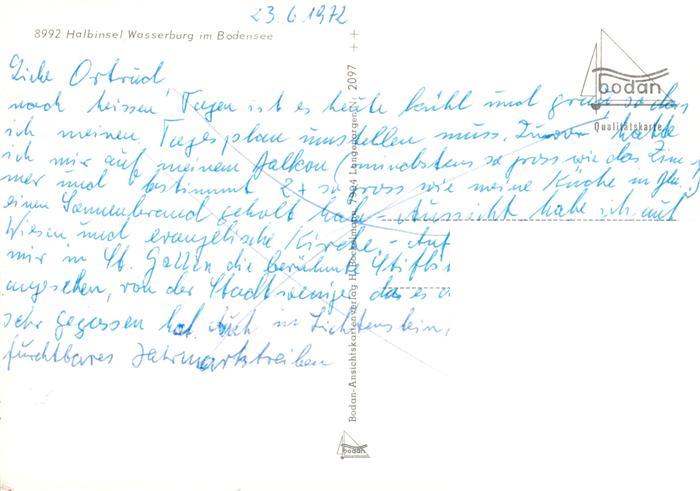 23.6.1972
8992 Halbinsel Wasserburg im Bodensee
Liebe Ortrud
nach heissen Tagen ist es heute kühl und grau so das
ich meinen Tagesplan umstellen muss. Zuvor hatte
ich mir auf meinem Balkon (mindstens so gross wie das Zim-
mer und bestimmt 2 + so gross wie meine Küche in
einen Sonnenbrand geholt habe - Aussicht habe ich auf
Wiesen und evangelische Kirche. - Auf
mir in St. Gallen die berühmte Stifts
angesehen, von der Stadt weniger das es
sehr gegossen hat. Auch in Lichtenstein,
furchtbares Jahrmarktstreiben
bodan
Qualitätskarte
Bodan-Ansichtskartenverlag H. Bockelmann, 7994 Langenargen Nr. 2097
bodan